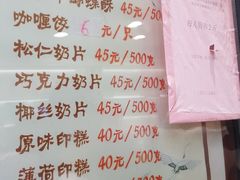 蝴蝶酥 45元/500克
咖喱饺 6元/只
松仁奶片 45元/500克
巧克力奶片 45元/500克
椰丝奶片 45元/500克
原味印糕 40元/500克
薄荷印糕 40元/500克